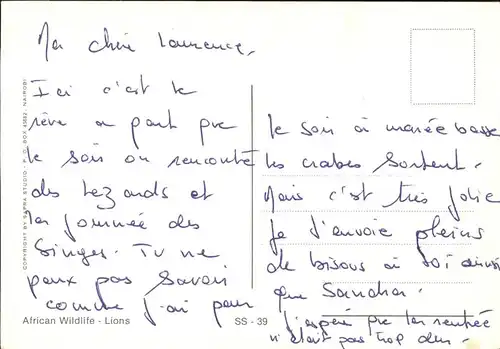 Ma chère Laurence,
Ici c'est le
rêve a part que
le soir on rencontre
des lezards et
la journée des
singes. Tu ne
peux pas savoir
comme j'ai peur
le soir à marée basse
les crabes sortent.
Mais c'est très jolie
Je t'envoie pleins
de bisous à toi ainsi
que Sandra.
j'espère que la rentrée
n'était pas trop dur.
COPYRIGHT BY SAPRA STUDIO - P. O. BOX 45822 - NAIROBI
African Wildlife - Lions
SS - 39